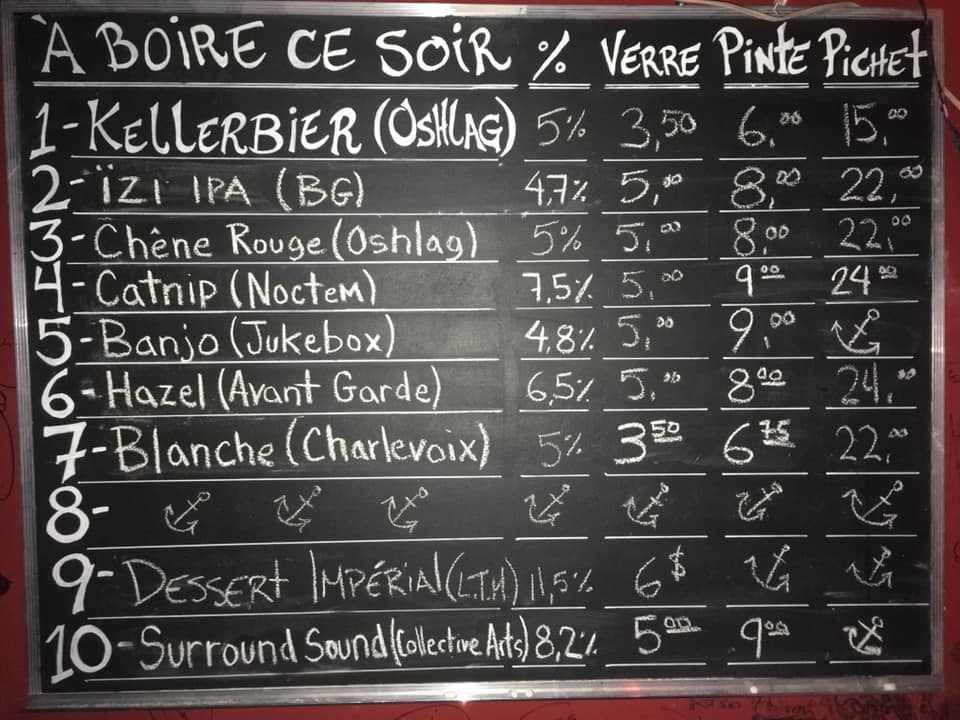 À BOIRE CE SOIR % VERRE PINTE PICHET
1-KELLERBIER (OSHLAG) 5% 3,50 6,00 15,00
2-ÏZI IPA (BG) 4,7% 5,00 8,00 22,00
3-Chêne Rouge (Oshlag) 5% 5,00 8,00 22,00
4-Catnip (Noctem) 7,5% 5,00 9 00 24 00
5-Banjo (Jukebox) 4,8% 5,00 9,00
6-Hazel (Avant Garde) 6,5% 5,00 8 00 24,00
7-Blanche (Charlevoix) 5% 3 50 6 75 22,00
8-
9-DESSERT IMPÉRIAL (L.T.M) 11,5% 6$
10-Surround Sound (Collective Arts) 8,2% 5 00 9 00